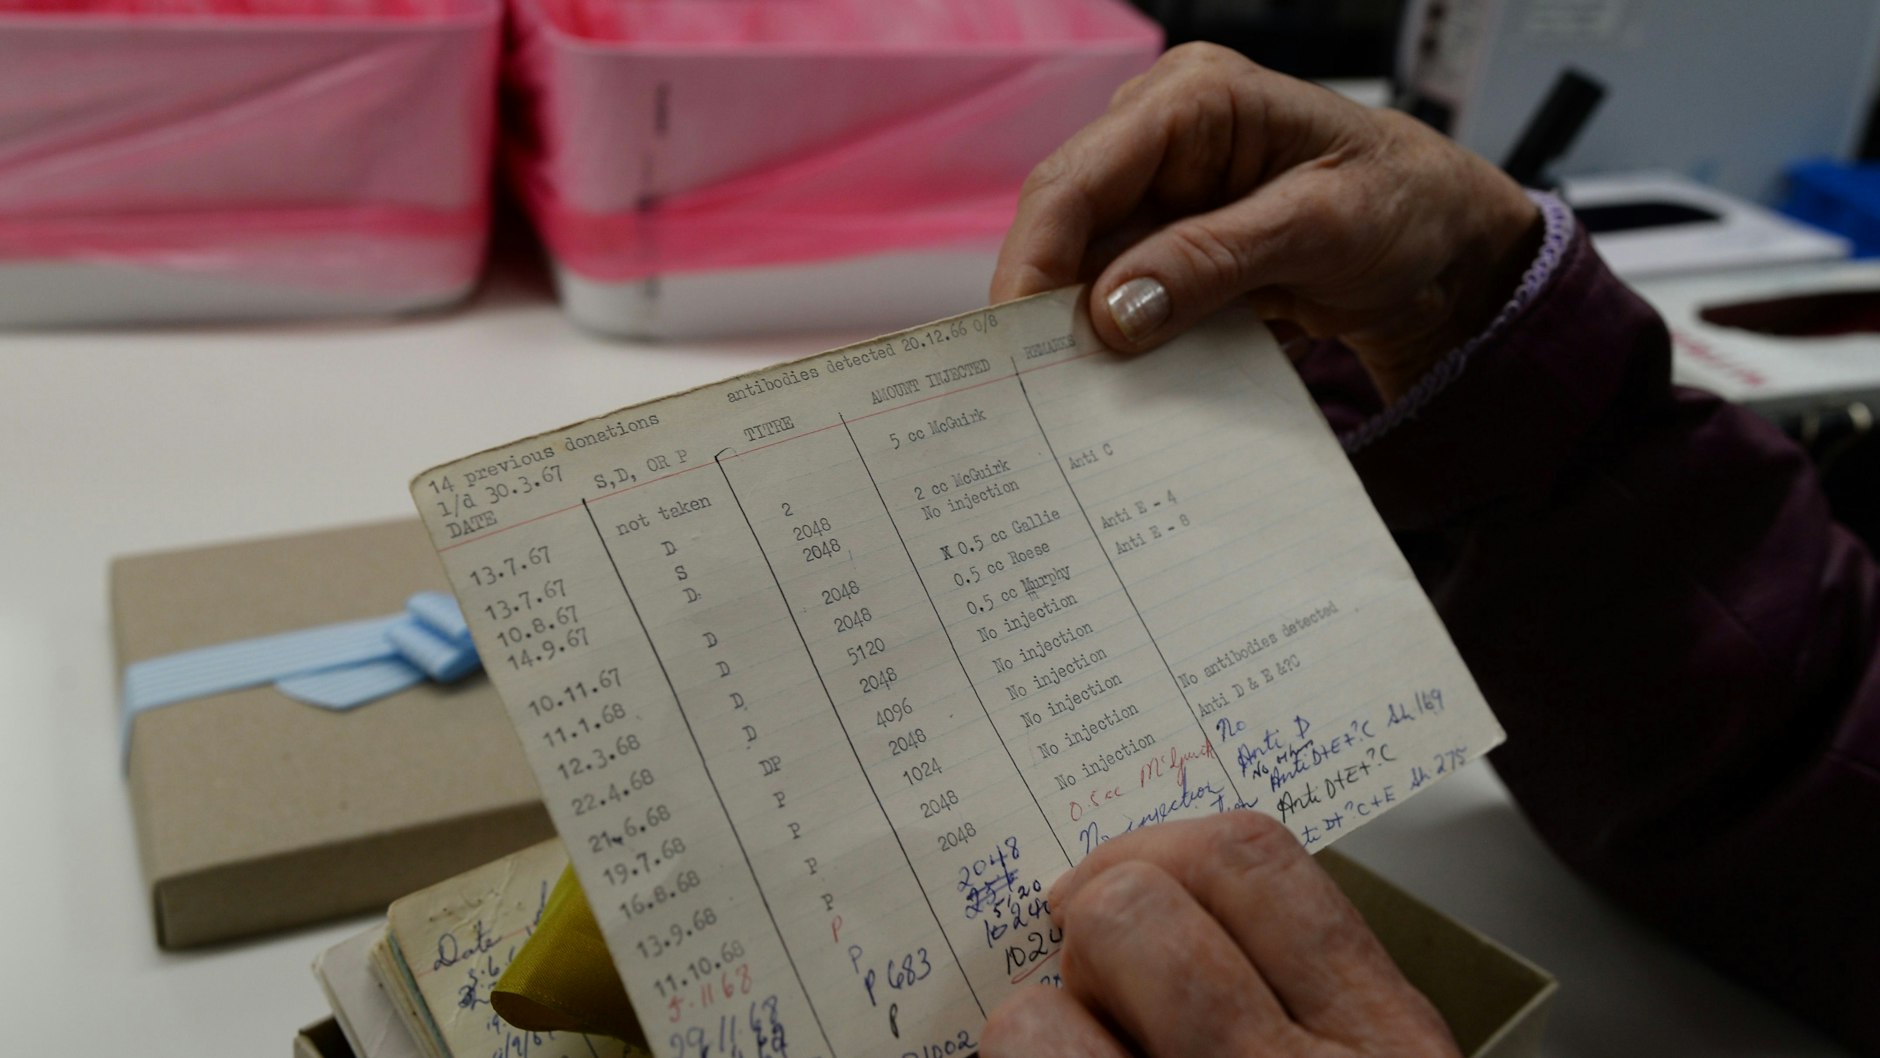 14 previous donations antibodies detected 20.12.66 0/8
1/d 30.3.67
DATE S,D, OR P TITRE AMOUNT INJECTED REMARKS
13.7.67 not taken 2 5 cc McGuirk
13.7.67 D 2048 2 cc McGuirk Anti C
10.8.67 S 2048 No injection
14.9.67 D. X 0.5 cc Gallie Anti E - 4
10.11.67 D 2048 0.5 cc Roese Anti E - 8
11.1.68 D 2048 0.5 cc Murphy
12.3.68 D 5120 No injection
22.4.68 D 2048 No injection
21.6.68 DP 4096 No injection
19.7.68 P 2048 No injection No antibodies detected
16.8.68 P 1024 No injection Anti D & E &?C
13.9.68 P 2048 No injection No
11.10.68 P 2048 0.5 cc Anti D
5.11.68 P 2048 No injection Anti D+E+?C Sh 169
29.11.68 P 1024 Anti D+E+?C
P 683 1024 ti D+?C+E Sh 275
P
1002
Date